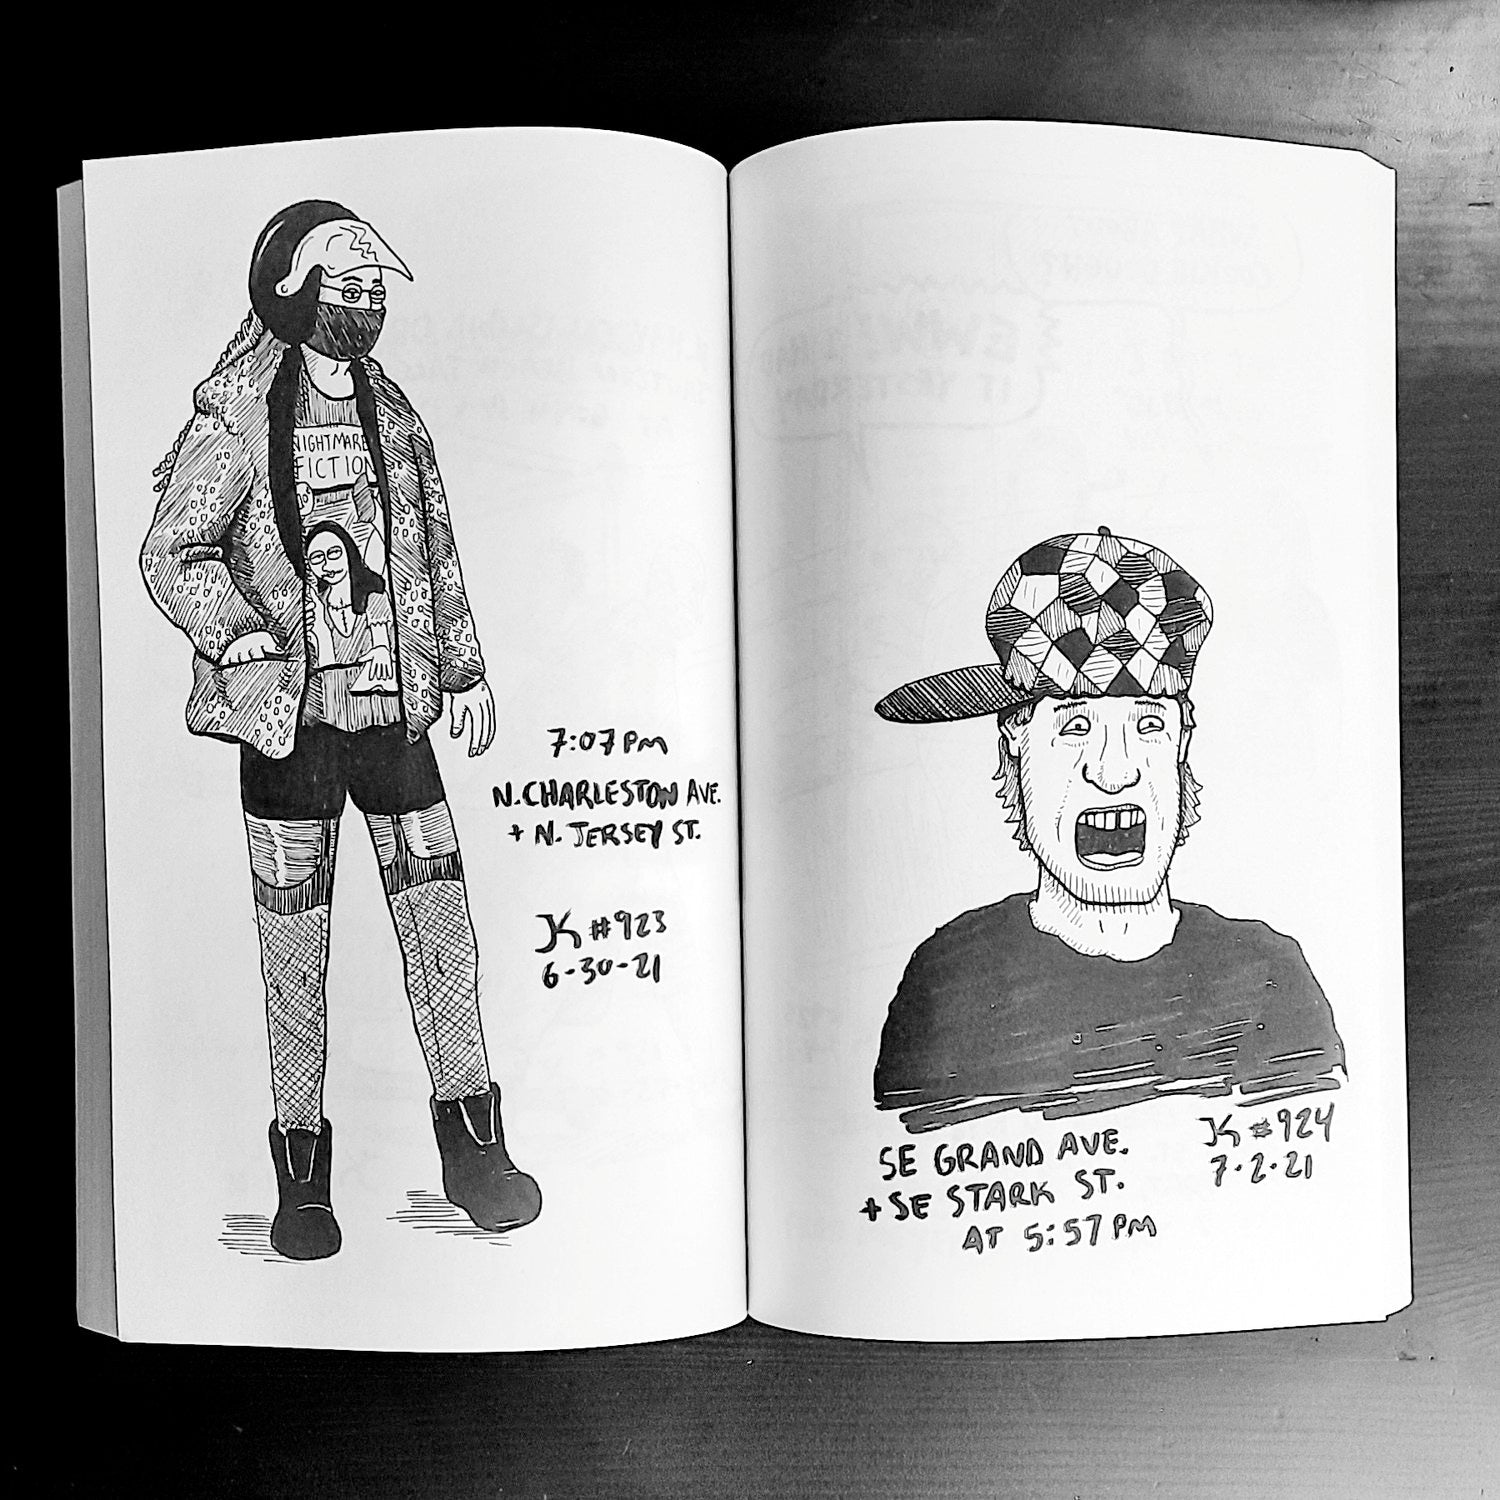 NIGHTMARE
FICTION
7:07 PM
N. CHARLESTON AVE.
+ N. JERSEY ST.
JK #923
6-30-21
SE GRAND AVE.
+ SE STARK ST.
AT 5:57 PM
JK #924
7·2·21